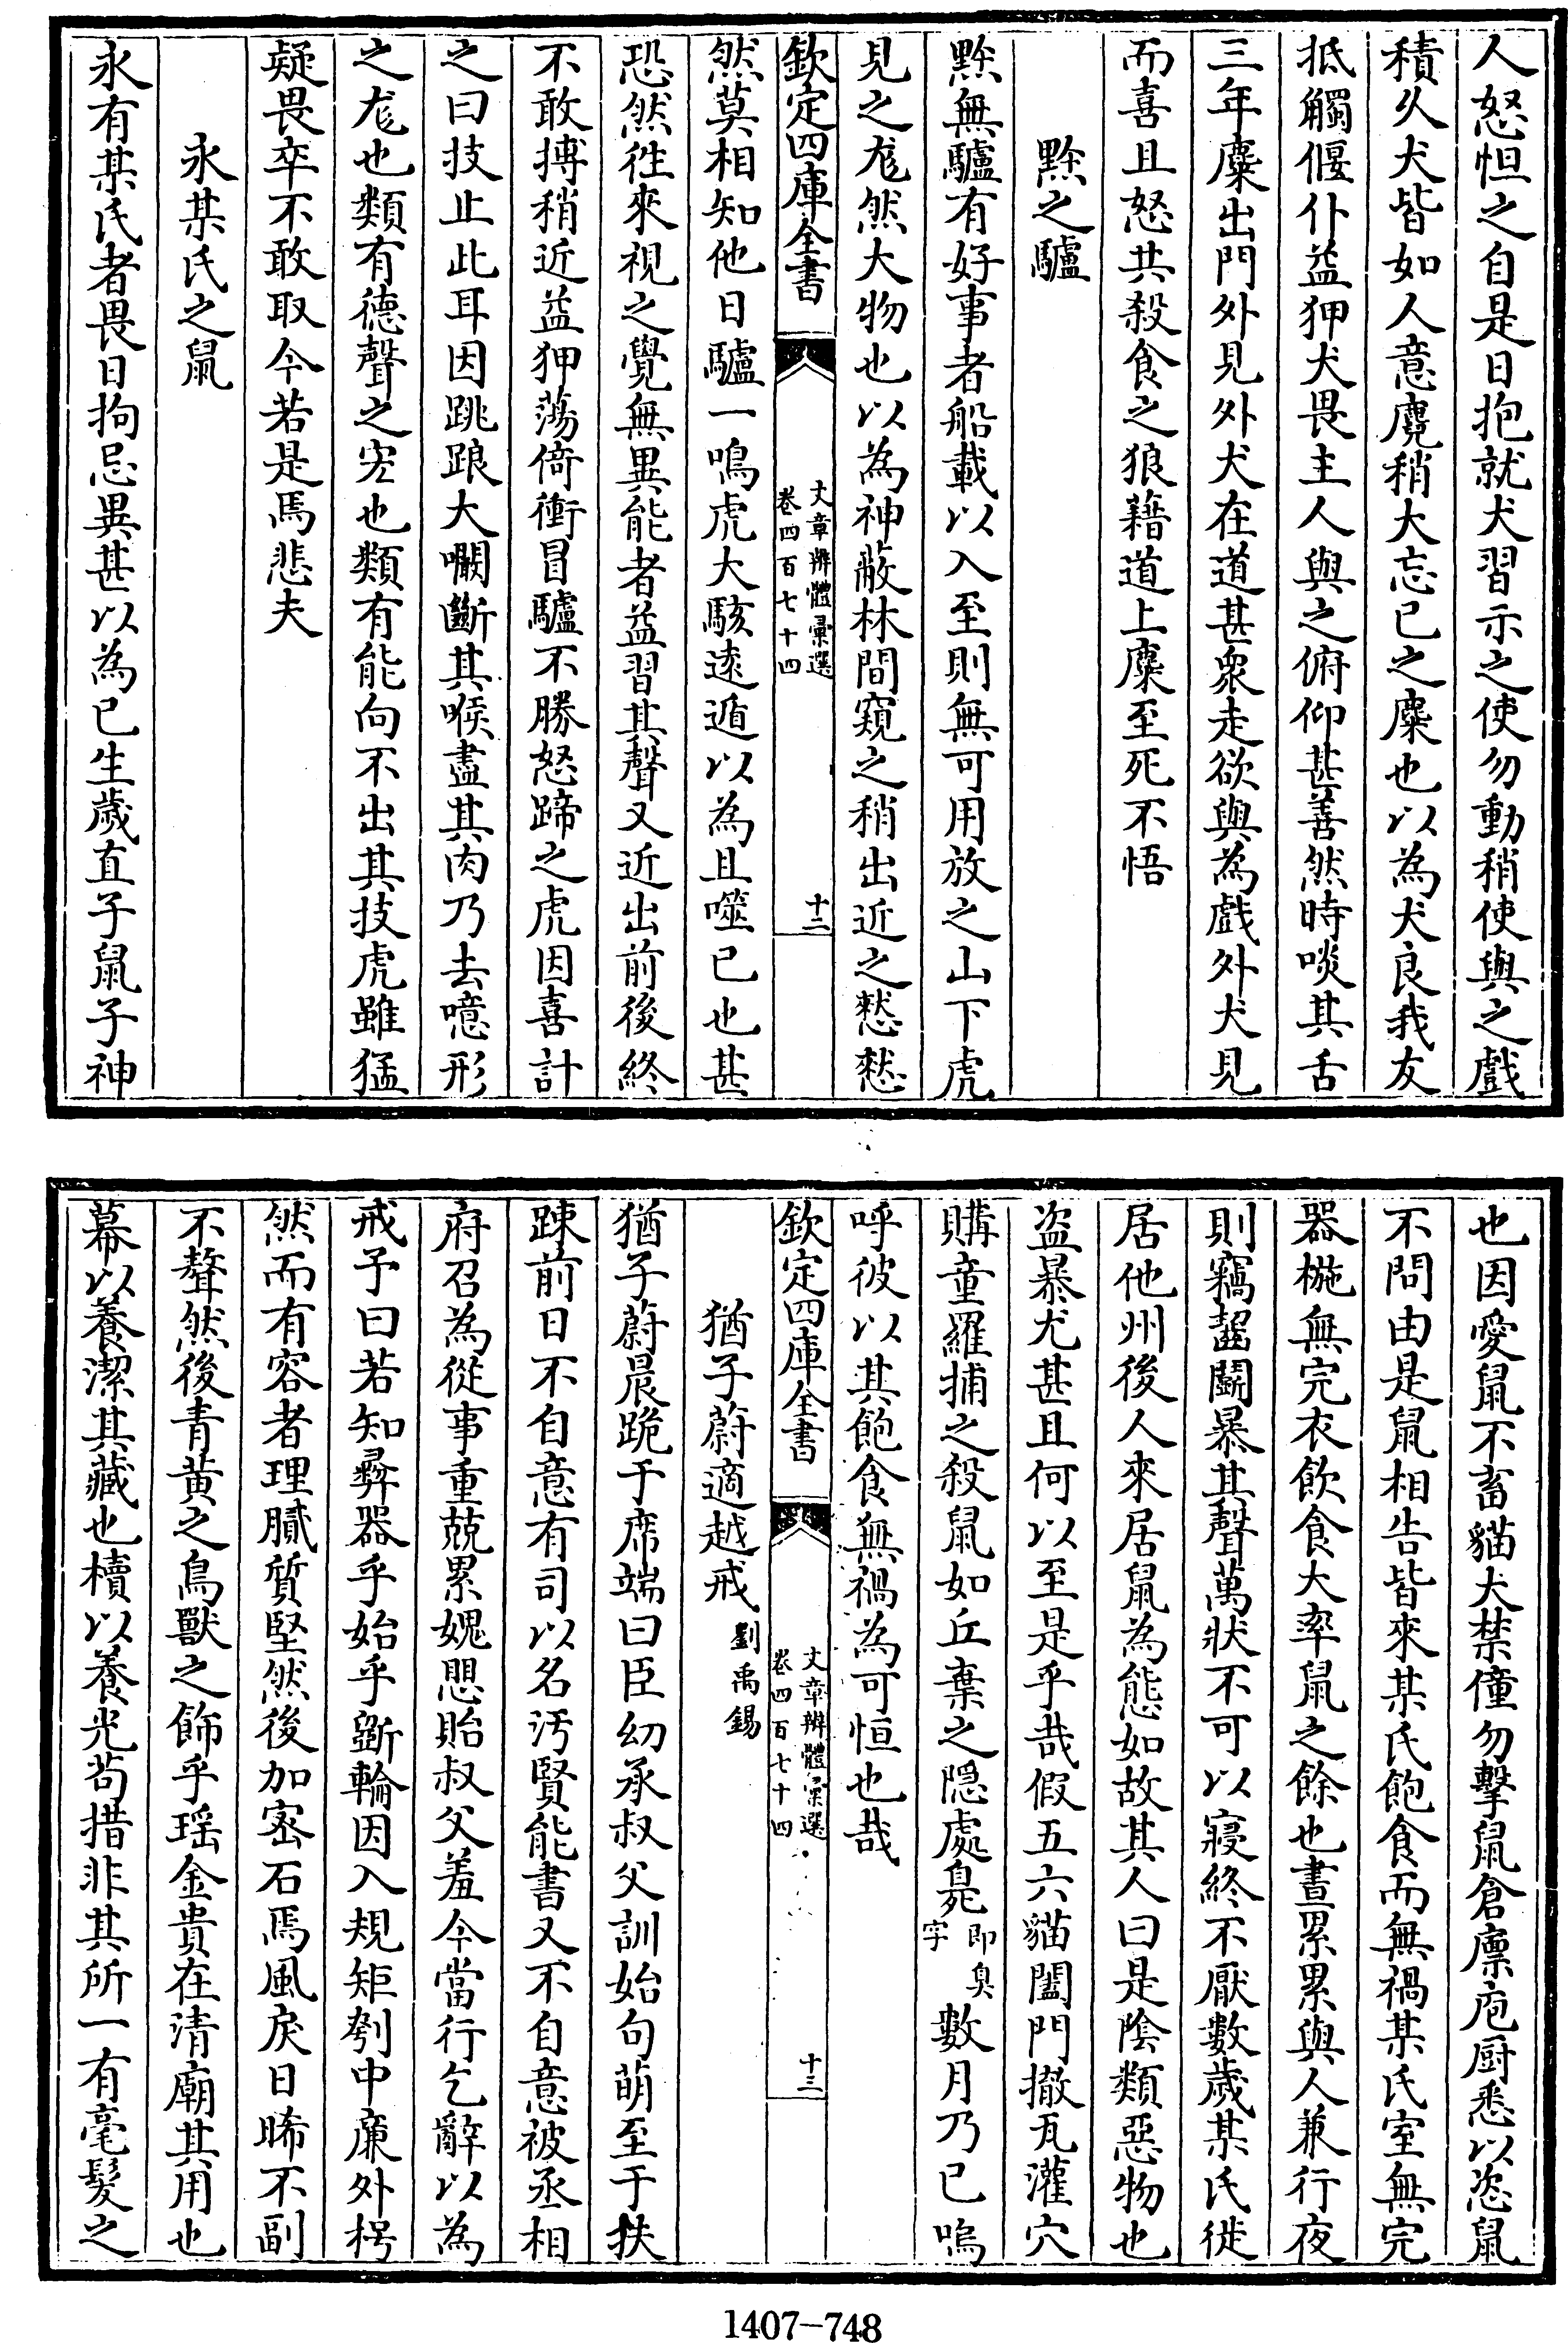 人怒怛之自是日抱就犬習示之使勿動稍使與之戲
積久犬皆如人意麑稍大忘已之麋也以為犬良我友
抵觸偃仆益狎犬畏主人與之俯仰甚善然時啖其舌
三年麋出門外見外犬在道甚衆走欲與為戲外犬見
而喜且怒共殺食之狼藉道上麋至死不悟
黔之驢
黔無驢有好事者船載以入至則無可用放之山下虎
見之尨然大物也以為神蔽林間窺之稍出近之憗憗
欽定四庫全書
文章辨體彙選
卷四百七十四
十二
然莫相知他日驢一鳴虎大駭逺遁以為且噬已也甚
恐然徃來視之覺無異能者益習其聲又近出前後終
不敢搏稍近益狎蕩倚衝冒驢不勝怒蹄之虎因喜計
之曰技止此耳因跳踉大㘚斷其喉盡其肉乃去噫形
之尨也類有德聲之宏也類有能向不出其技虎雖猛
疑畏卒不敢取今若是焉悲夫
永某氏之鼠
永有某氏者畏日拘忌異甚以為已生歲直子鼠子神
也因愛鼠不畜貓犬禁僮勿擊鼠倉廪庖厨悉以恣鼠
不問由是鼠相告皆來某氏飽食而無禍某氏室無完
器椸無完衣飲食大率鼠之餘也晝累累與人兼行夜
則竊齧鬭暴其聲萬狀不可以寢終不厭數歲某氏徙
居他州後人來居鼠為態如故其人曰是陰類惡物也
盗暴尤甚且何以至是乎哉假五六貓闔門撤瓦灌穴
購童羅捕之殺鼠如丘棄之隠處臰即臭字數月乃已嗚
呼彼以其飽食無禍為可恒也哉
欽定四庫全書
文章辨體彙選
卷四百七十四
十三
猶子蔚適越戒 劉禹錫
猶子蔚晨跪于席端曰臣幼承叔父訓始句萌至于扶
踈前日不自意有司以名汚賢能書又不自意被丞相
府召為從事重兢累媿愳貽叔父羞今當行乞辭以為
戒予曰若知彛器乎始乎斲輪因入規矩刳中廉外枵
然而有容者理膩質堅然後加宻石焉風戾日晞不副
不聱然後青黄之鳥獸之飾乎瑶金貴在清廟其用也
幕以養潔其藏也櫝以養光茍措非其所一有毫髮之
1407-748